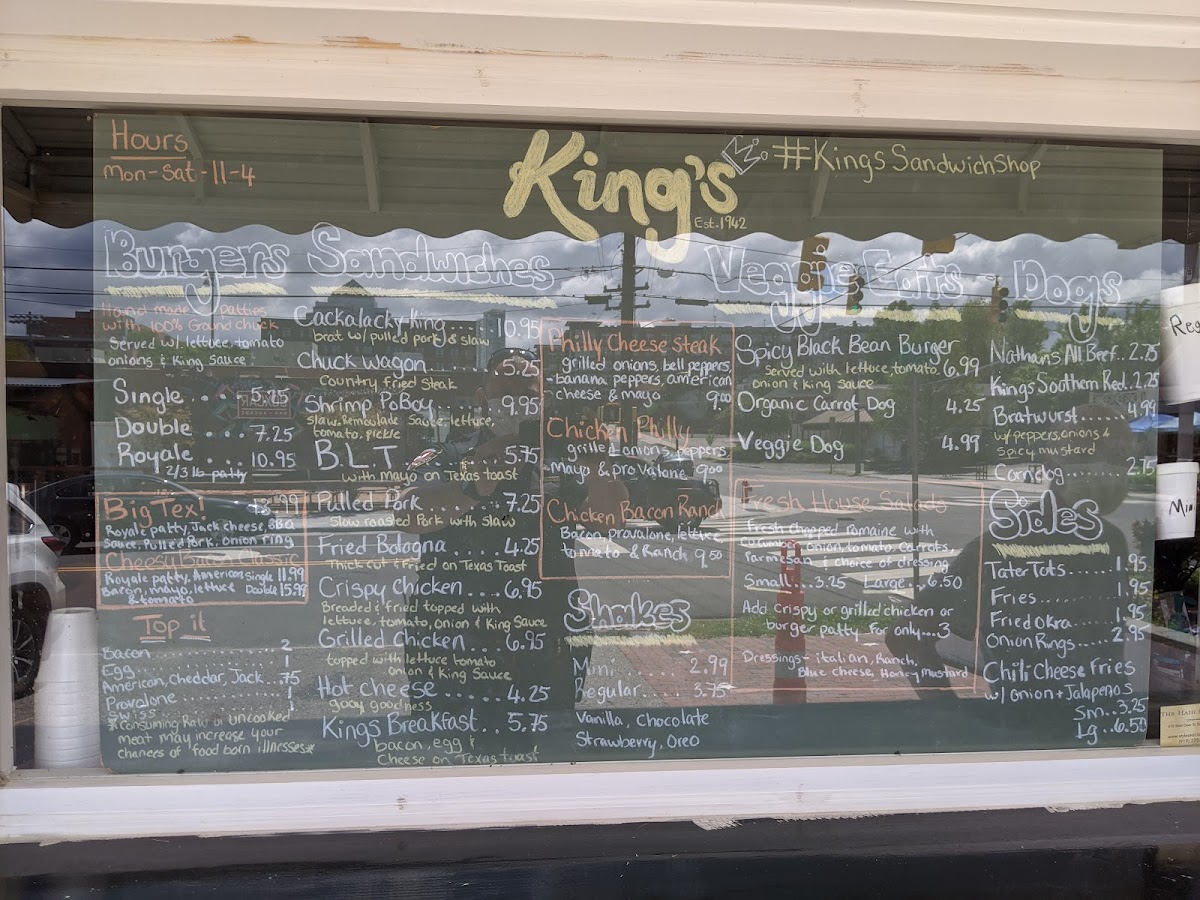 Hours
Mon-Sat-11-4
King's
Est. 1942
#KingsSandwichShop
Burgers
Hand made Patties
with 100% Ground Chuck
Served w/ lettuce, tomato
onions & King Sauce
Single... 5.25
Double.... 7.25
Royale... 10.95
2/3 lb. patty
Big Tex!
Royale patty, Jack cheese, BBQ
Sauce, Pulled Pork, Onion ring
Cheesy Bacon Classic
Royale patty, American Single 11.99
Bacon, mayo, lettuce Double 15.99
& tomato
Top it
Bacon 2
Egg 1
American, Cheddar, Jack .75
Provalone 1
Swiss 1
*Consuming Raw or uncooked
meat may increase your
chances of food born illnesses*
Sandwiches
Cackalacky King 10.95
brat w/ pulled pork & slaw
Chuck Wagon 5.25
Country fried steak
Shrimp PoBoy 9.95
Slaw, Remoulade Sauce, lettuce,
tomato, pickle
B.L.T 5.75
with Mayo on Texas Toast
Pulled Pork 7.25
Slow roasted Pork with slaw
Fried Bologna.... 4.25
Thick cut & fried on Texas Toast
Crispy Chicken... 6.95
Breaded & fried topped with
lettuce, tomato, onion & King Sauce
Grilled Chicken 6.95
topped with lettuce tomato
onion & King Sauce
Hot cheese.... 4.25
gooy goodness
Kings Breakfast.. 5.75
bacon, egg &
Cheese on Texas toast
Philly Cheese steak
grilled onions, bell peppers,
-banana peppers, american
cheese & mayo 9.00
Chicken Philly
grilled onions, peppers
mayo & provalone 9.00
Chicken Bacon Ranch
Bacon, provalone, lettuce
tomato & Ranch 9.50
Shakes
Mini.... 2.99
Regular.... 3.75
Vanilla, Chocolate
Strawberry, Oreo
Veggie Eats
Spicy Black Bean Burger
Served with lettuce, tomato 6.99
onion & King sauce
Organic Carrot Dog 4.25
Veggie Dog 4.99
Fresh House Salads
Fresh chopped romaine with
cucumber, onion, tomato, carrots,
Parmesan & choice of dressing
Small...3.25 Large...6.50
Add Crispy or grilled chicken or
burger patty For only...3
Dressings- italian, Ranch,
Blue cheese, Honey mustard
Dogs
Nathans All Beef.. 2.75
Kings Southern Red. 2.25
Bratwurst.... 4.99
w/ peppers, onions &
Spicy mustard
Corndog 2.75
Sides
Tater Tots..... 1.95
Fries...... 1.95
Fried Okra.... 1.95
Onion Rings.... 2.95
Chili Cheese Fries
w/ onion + Jalapenos
Sm..3.25
Lg..6.50